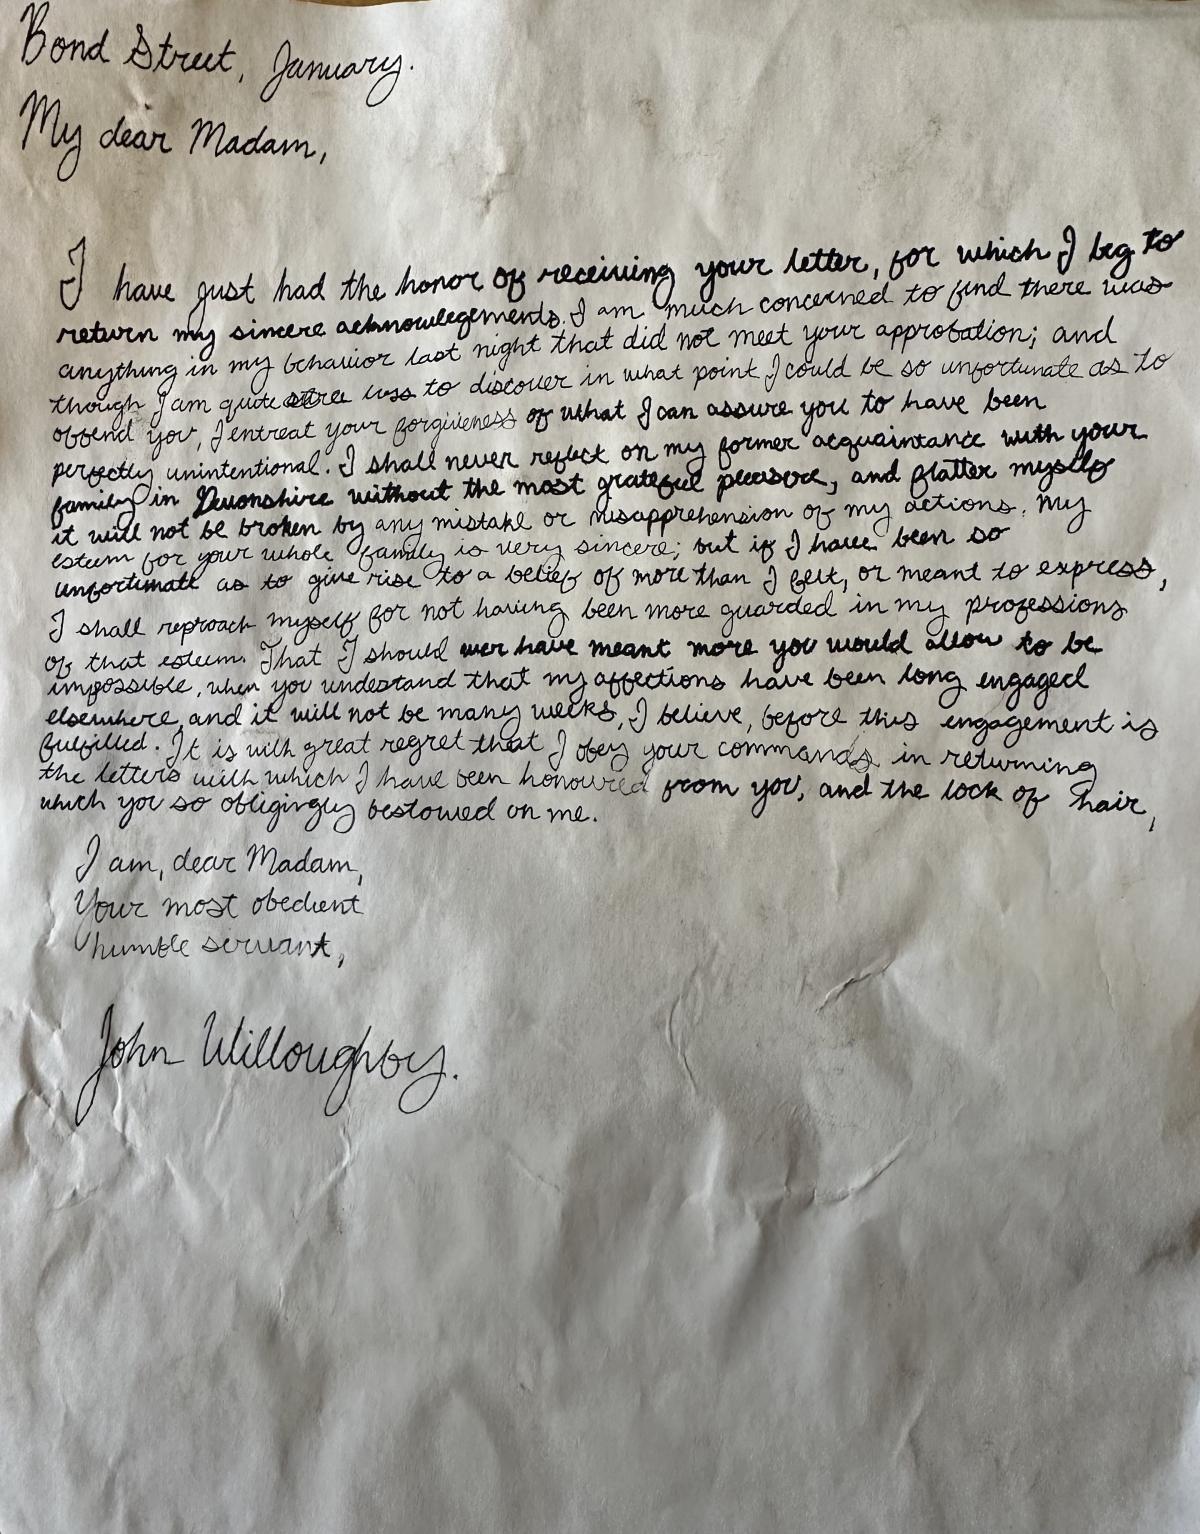 Bond Street, January.
My dear Madam,
I have just had the honor of receiving your letter, for which I beg to
return my sincere acknowlegements. I am much concerned to find there was
anything in my behavior last night that did not meet your approbation; and
though I am quite at a loss to discover in what point I could be so unfortunate as to
offend you, I entreat your forgiveness of what I can assure you to have been
perfectly unintentional. I shall never reflect on my former acquaintance with your
family in Devonshire without the most grateful pleasure, and flatter myself
it will not be broken by any mistake or misapprehension of my actions. My
esteem for your whole family is very sincere; but if I have been so
unfortunate as to give rise to a belief of more than I felt, or meant to express,
I shall reproach myself for not having been more guarded in my professions
of that esteem. That I should ever have meant more you would allow to be
impossible, when you understand that my affections have been long engaged
elsewhere, and it will not be many weeks, I believe, before this engagement is
fulfilled. It is with great regret that I obey your commands in returning
the letters with which I have been honoured from you, and the lock of hair,
which you so obligingly bestowed on me.
I am, dear Madam,
Your most obedient
humble servant,
John Willoughby.